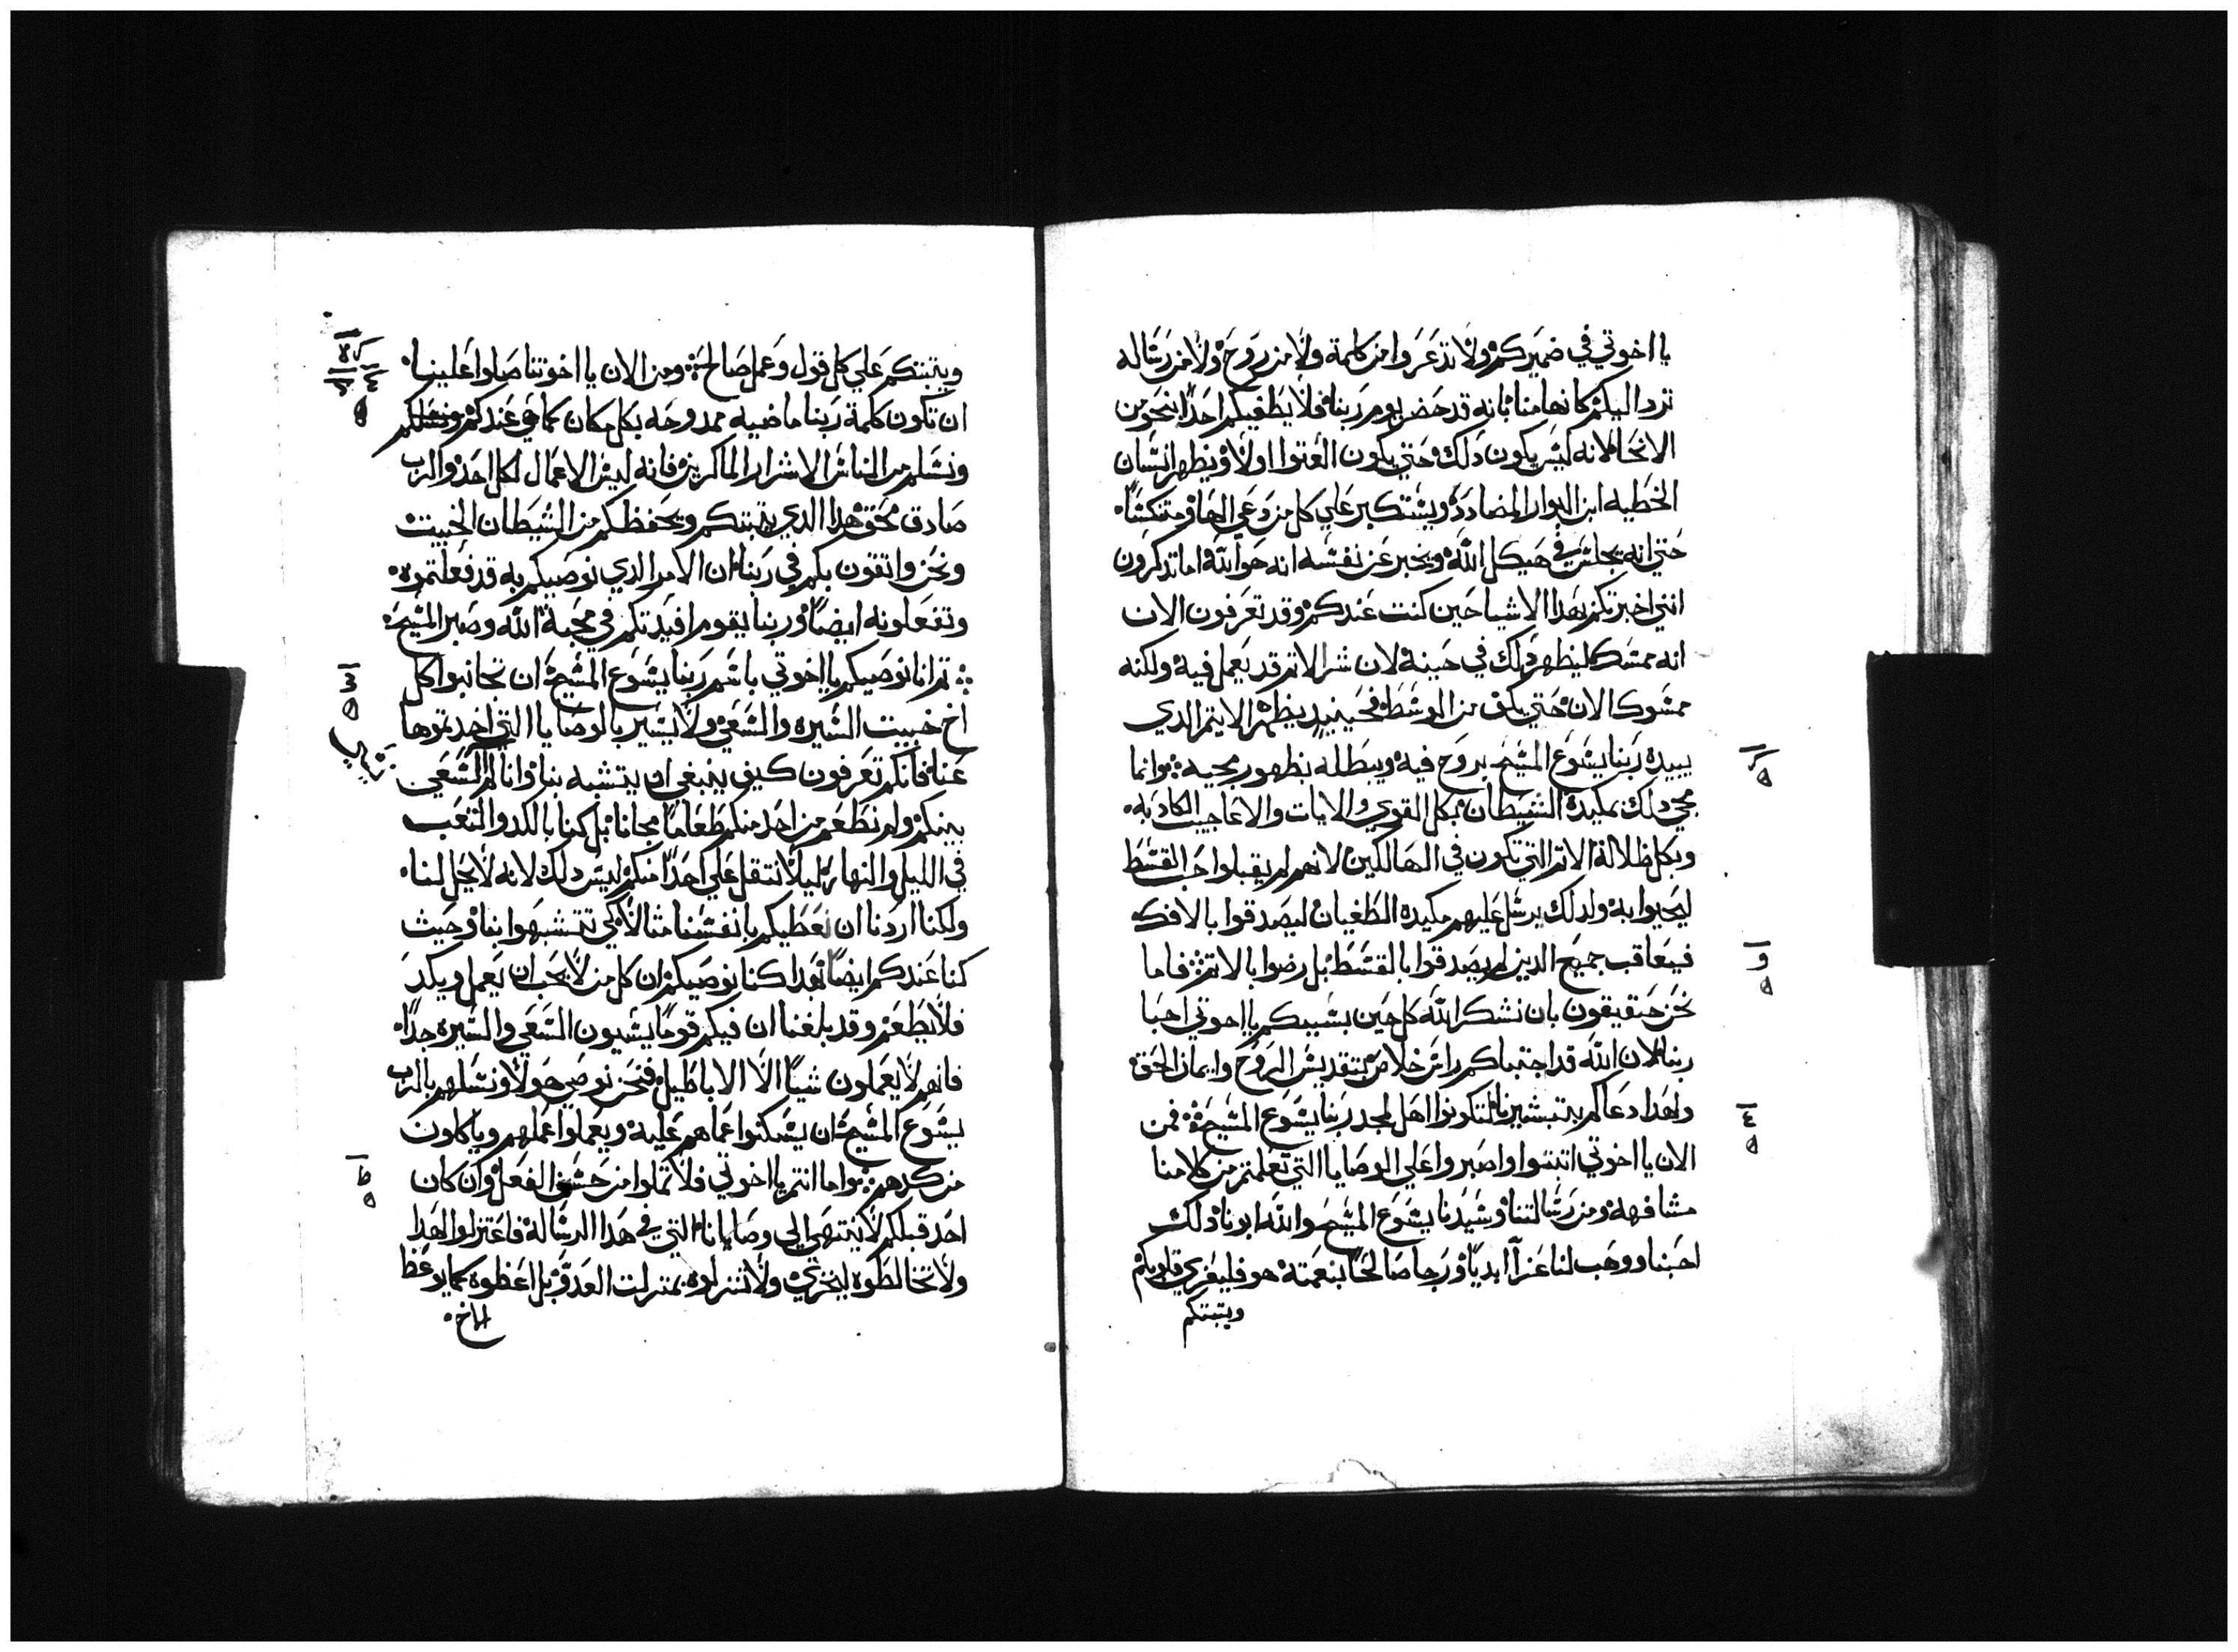 يا اخوتي في ضميركم ولا تدعروا من كلمة ولا من روح ولا من رساله
ترد اليكم كانها منا بانه قد حضر يوم ربنا فلا يطغيكم احدًا بنحو من
الانحا لانه ليس يكون دلك حتي يكون العتوا اولا ويظهر انسان
الخطيه ابن البوار المضادد ويستكبر علي كل من دعي الها
حتي انه يجلس في هيكل الله ويخبر عن نفسه انه هو الله اما تدكرون
انني اخبرتكم بهدا الاشيا حين كنت عندكم وقد تعرفون الان
انه ممسك ليظهر دلك في حينه لان شر الاتم قد يعمل فيه ولكنه
ممسوكا الان حتي يكف من الوسط فحينيد يظهر الايتم الدي
يبيده ربنا يسوع المسيح بروح فيه ويبطله بظهور مجيه وانما
مجي دلك بمكيدة الشيطان بكل القوي والايات والاعاجيب الكادبه
وبكل ظلالة الاتم التي تكون في الهالكين لانهم لم يقبلوا حب القسط
ليحيوا به ولدلك يرسل عليهم مكيدة الطغيان ليصدقوا بالافك
فيعاقب جميع الدين لم يصدقوا بالقسط بل رضوا بالاتم فاما
نحن حقيقون بان نشكر الله كل حين بسببكم يا اخوتي احبا
ربنا لان الله قد اجتباكم راس خلاص بتقديس الروح وايمان الحق
ولهدا دعاكم بتبشيرنا لتكونوا اهل لمجد ربنا يسوع المسيح فمن
الان يا اخوتي اتبتوا واصبروا علي الوصايا التي تعلمتم من كلامنا
مشافهة ومن رسالتنا وسيدنا يسوع المسيح والله ابونا دلك
احبنا ووهب لنا عزآ ابديًا ورجا صالحًا بنعمته هو فليعزي قلوبكم
ويتبتكم
ويتبتكم علي كل قول وعمل صالح ومن الان يا اخوتنا صلوا علينا
ان تكون كلمة ربنا ماضيه ممدوحه بكل مكان كما في عندكم
ونسلم من الناس الاشرار الماكرين فانه ليس الاعمال لكل احد والرب
صادق محق هدا الدي يتبتكم ويحفظكم من الشيطان الخبيت
ونحن واتقون بكم في ربنا ان الامر الدي نوصيكم به قد فعلتموه
وتفعلونه ايضًا وربنا يقوم افيدتكم في محبة الله وصبر المسيح
تم انا نوصيكم يا اخوتي باسم ربنا يسوع المسيح ان تجانبوا كل
اخ خبيت السيره والسعي ولا يسير بالوصايا التي اخدتموها
عنا فانكم تعرفون كيف ينبغي ان يتشبه بنا وانا لم السعي
بينكم ولم نطعم من احد منكم طعامًا مجانا بل كنا بالكد والتعب
في الليل والنهار ليلا نتقل علي احدًا منكم ليس دلك لانه لا يحل لنا
ولكنا اردنا ان نعطيكم بانفسنا متالا لكي تتشبهوا بنا وحيث
كنا عندكم ايضًا بهدا كنا نوصيكم ان كل من لا يحب ان يعمل ويكد
فلا يطعم وقد بلغنا ان فيكم قومًا يسيون السعي والسيره جدًا
فانهم لا يعملون شيًا الا الاباطيل فنحن نوصي هولا ونسلهم بالرب
يسوع المسيح ان يسكنوا عما هم عليه ويعملوا عملهم وياكلون
من كدهم واما انتم يا اخوتي فلا تملوا من حسن الفعل وان كان
احد قبلكم لا ينتهي الي وصايانا التي في هدا الرساله فاعتزلوا لهدا
ولا تخالطوه ليخزي ولا تنزلوه بمنزلت العدو بل اعظوه كما يوعظ
الاخ